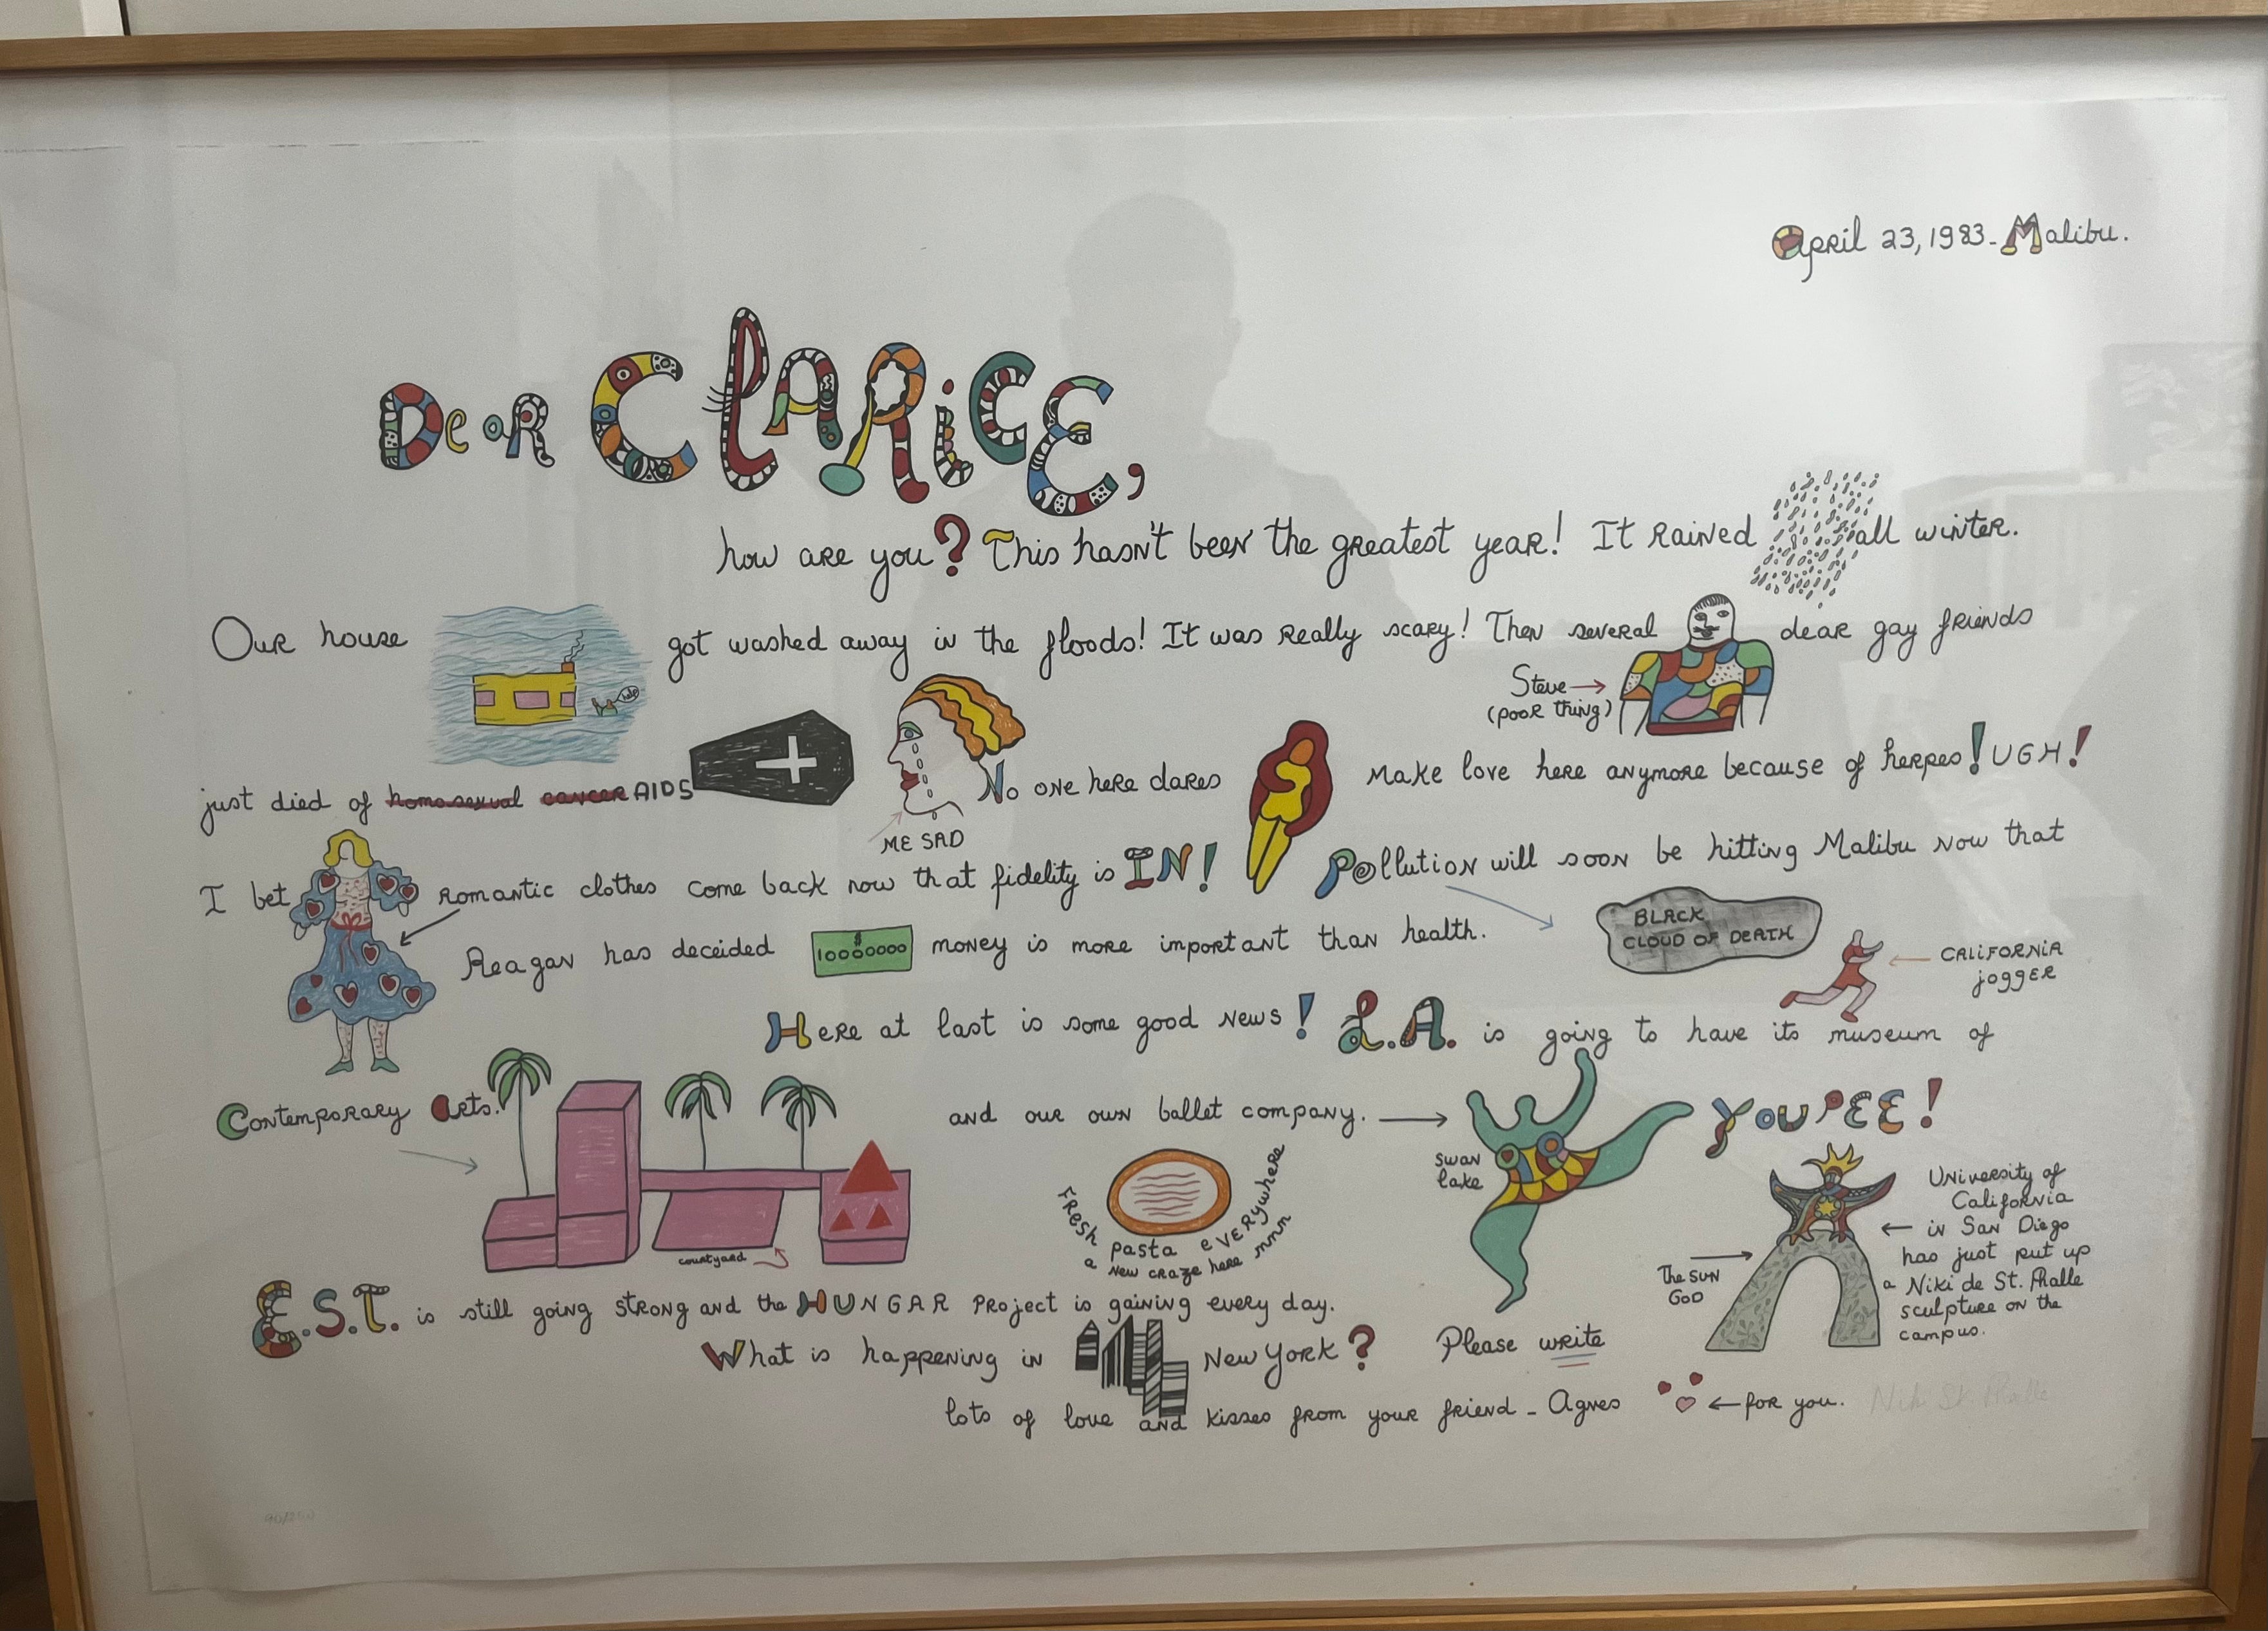 April 23, 1983 - Malibu.
Dear CLARICE,
how are you? This hasn't been the greatest year! It rained all winter.
Our house got washed away in the floods! It was really scary! Then several dear gay friends
help
Steve →
(poor thing)
just died of homosexual cancer AIDS No one here dares make love here anymore because of herpes! UGH!
ME SAD
I bet romantic clothes come back now that fidelity is IN! Pollution will soon be hitting Malibu now that
Reagan has deceided $ 10000000 money is more important than health.
BLACK
CLOUD OF DEATH
← CALIFORNIA
jogger
Here at last is some good news! L.A. is going to have its museum of
Contemporary Arts. and our own ballet company. → YOUPEE!
swan
lake
courtyard
Fresh pasta everywhere
a new craze here mmm
University of
California
← in San Diego
has just put up
a Niki de St. Phalle
sculpture on the
campus.
The SUN
GOD
E.S.T. is still going strong and the HUNGAR Project is gaining every day.
What is happening in New York? Please write
lots of love and kisses from your friend - Agnes ← for you.
Niki St Phalle